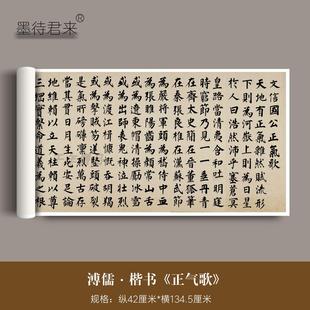 墨待君来®
文信國公正氣歌
天地有正氣雜然賦流形
下則為河嶽上則為日星
於人曰浩然沛乎塞蒼冥
皇路當清夷含和吐明庭
時窮節乃見一一垂丹青
在齊太史簡在晉董狐筆
在秦張良椎在漢蘇武節
為嚴將軍頭為嵇侍中血
為張睢陽齒為顏常山舌
或為遼東帽清操厲冰雪
或為出師表鬼神泣壯烈
或為渡江楫慷慨吞胡羯
或為擊賊笏逆豎頭破裂
是氣所磅礴凜烈萬古存
當其貫日月生死安足論
地維賴以立天柱賴以尊
三綱實繫命道義為之根
溥儒·楷书《正气歌》
规格：纵42厘米*横134.5厘米